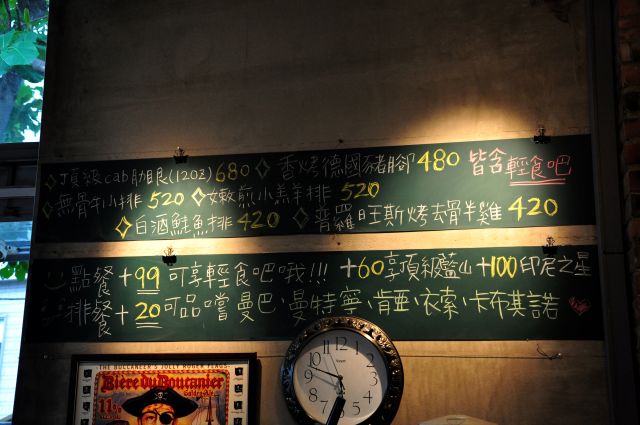 頂級cab肋眼(12oz) 680 香烤德國豬腳 480 皆含輕食吧
無骨牛小排 520 嫩煎小羔羊排 520
白酒鮭魚排 420 普羅旺斯烤去骨半雞 420
點餐+99可享輕食吧哦!!! +60享頂級藍山 +100印尼之星
排餐+20可品嚐曼巴、曼特寧、肯亞、衣索、卡布其諾
THE BUCCANEER'S JOLLY ROGER
Bière du Boucanier
Golden Ale
11%